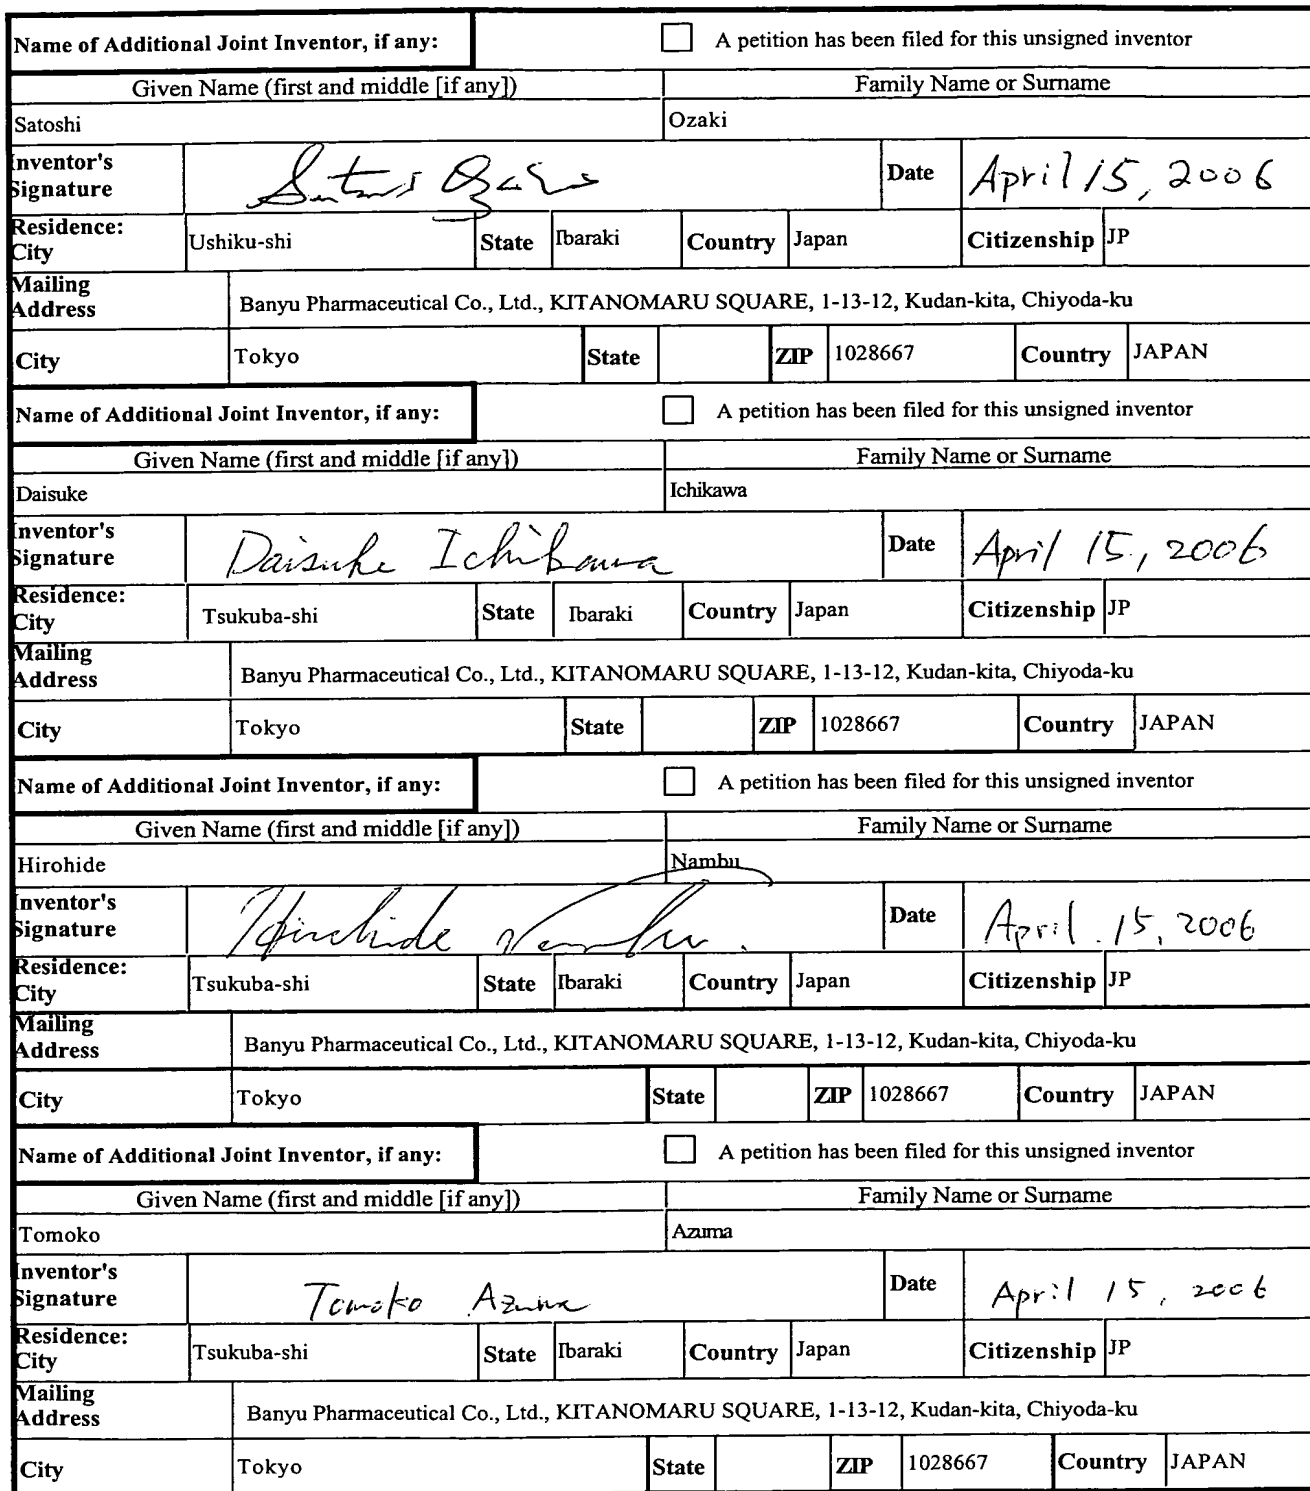 Name of Additional Joint Inventor, if any: A petition has been filed for this unsigned inventor
Given Name (first and middle [if any]) Family Name or Surname
Satoshi Ozaki
Inventor's Signature Satoshi Ozaki Date April 15, 2006
Residence: City Ushiku-shi State Ibaraki Country Japan Citizenship JP
Mailing Address Banyu Pharmaceutical Co., Ltd., KITANOMARU SQUARE, 1-13-12, Kudan-kita, Chiyoda-ku
City Tokyo State ZIP 1028667 Country JAPAN
Name of Additional Joint Inventor, if any: A petition has been filed for this unsigned inventor
Given Name (first and middle [if any]) Family Name or Surname
Daisuke Ichikawa
Inventor's Signature Daisuke Ichikawa Date April 15, 2006
Residence: City Tsukuba-shi State Ibaraki Country Japan Citizenship JP
Mailing Address Banyu Pharmaceutical Co., Ltd., KITANOMARU SQUARE, 1-13-12, Kudan-kita, Chiyoda-ku
City Tokyo State ZIP 1028667 Country JAPAN
Name of Additional Joint Inventor, if any: A petition has been filed for this unsigned inventor
Given Name (first and middle [if any]) Family Name or Surname
Hirohide Nambu
Inventor's Signature Hirohide Nambu. Date April. 15, 2006
Residence: City Tsukuba-shi State Ibaraki Country Japan Citizenship JP
Mailing Address Banyu Pharmaceutical Co., Ltd., KITANOMARU SQUARE, 1-13-12, Kudan-kita, Chiyoda-ku
City Tokyo State ZIP 1028667 Country JAPAN
Name of Additional Joint Inventor, if any: A petition has been filed for this unsigned inventor
Given Name (first and middle [if any]) Family Name or Surname
Tomoko Azuma
Inventor's Signature Tomoko Azuma Date April 15, 2006
Residence: City Tsukuba-shi State Ibaraki Country Japan Citizenship JP
Mailing Address Banyu Pharmaceutical Co., Ltd., KITANOMARU SQUARE, 1-13-12, Kudan-kita, Chiyoda-ku
City Tokyo State ZIP 1028667 Country JAPAN